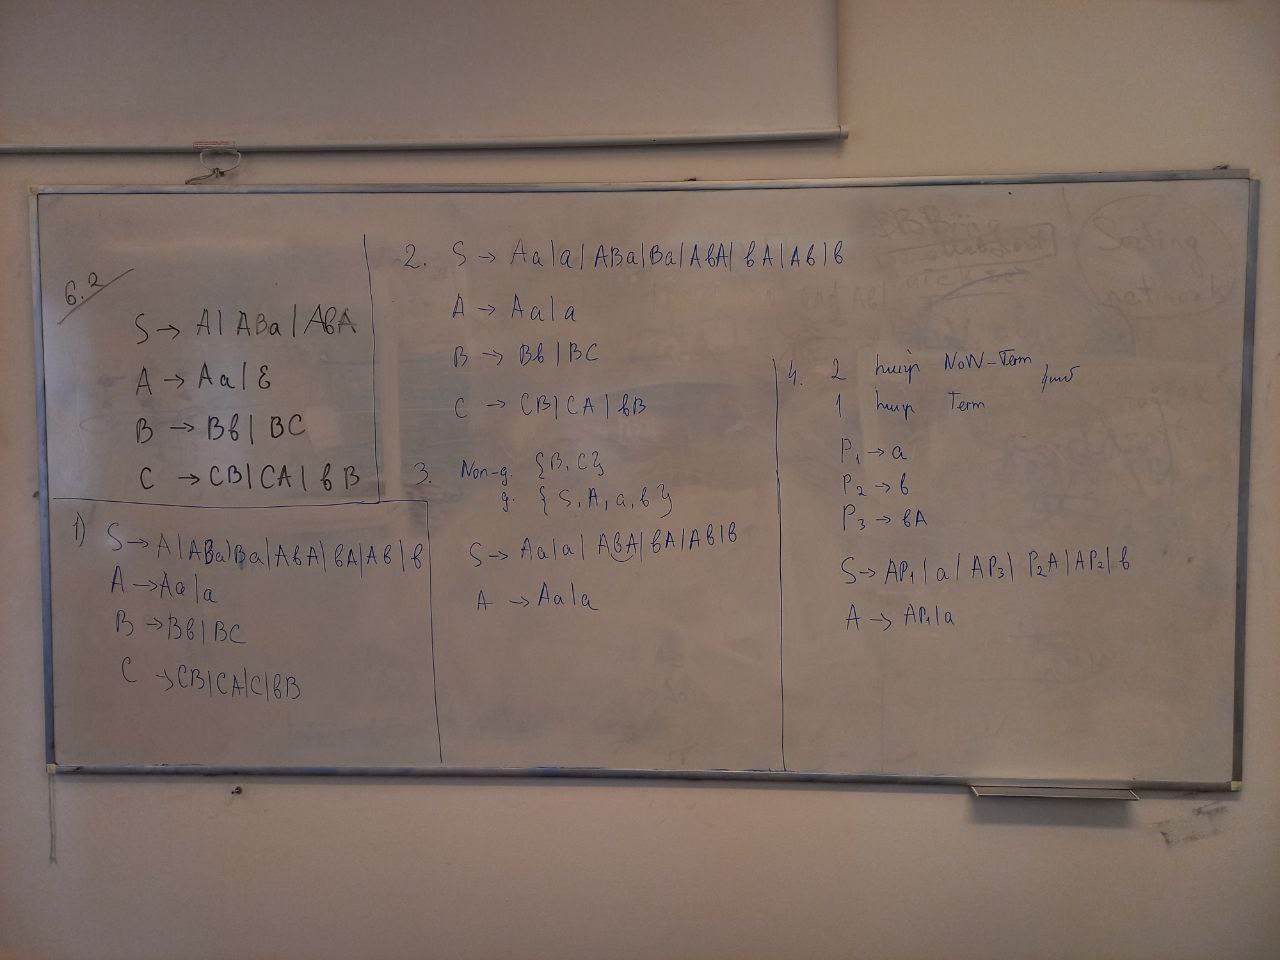 6.2
S → A | ABa | AbA
A → Aa | ε
B → Bb | BC
C → CB | CA | bB
1) S → A | ABa | Ba | AbA | bA | Ab | b
A → Aa | a
B → Bb | BC
C → CB | CA | C | bB
2. S → Aa | a | ABa | Ba | AbA | bA | Ab | b
A → Aa | a
B → Bb | BC
C → CB | CA | bB
3. Non-g. {B, C}
g. {S, A, a, b}
S → Aa | a | AbA | bA | Ab | b
A → Aa | a
4. 2 հատ NoN-Term կամ
1 հատ Term
P₁ → a
P₂ → b
P₃ → bA
S → AP₁ | a | AP₃ | P₂A | AP₂ | b
A → AP₁ | a